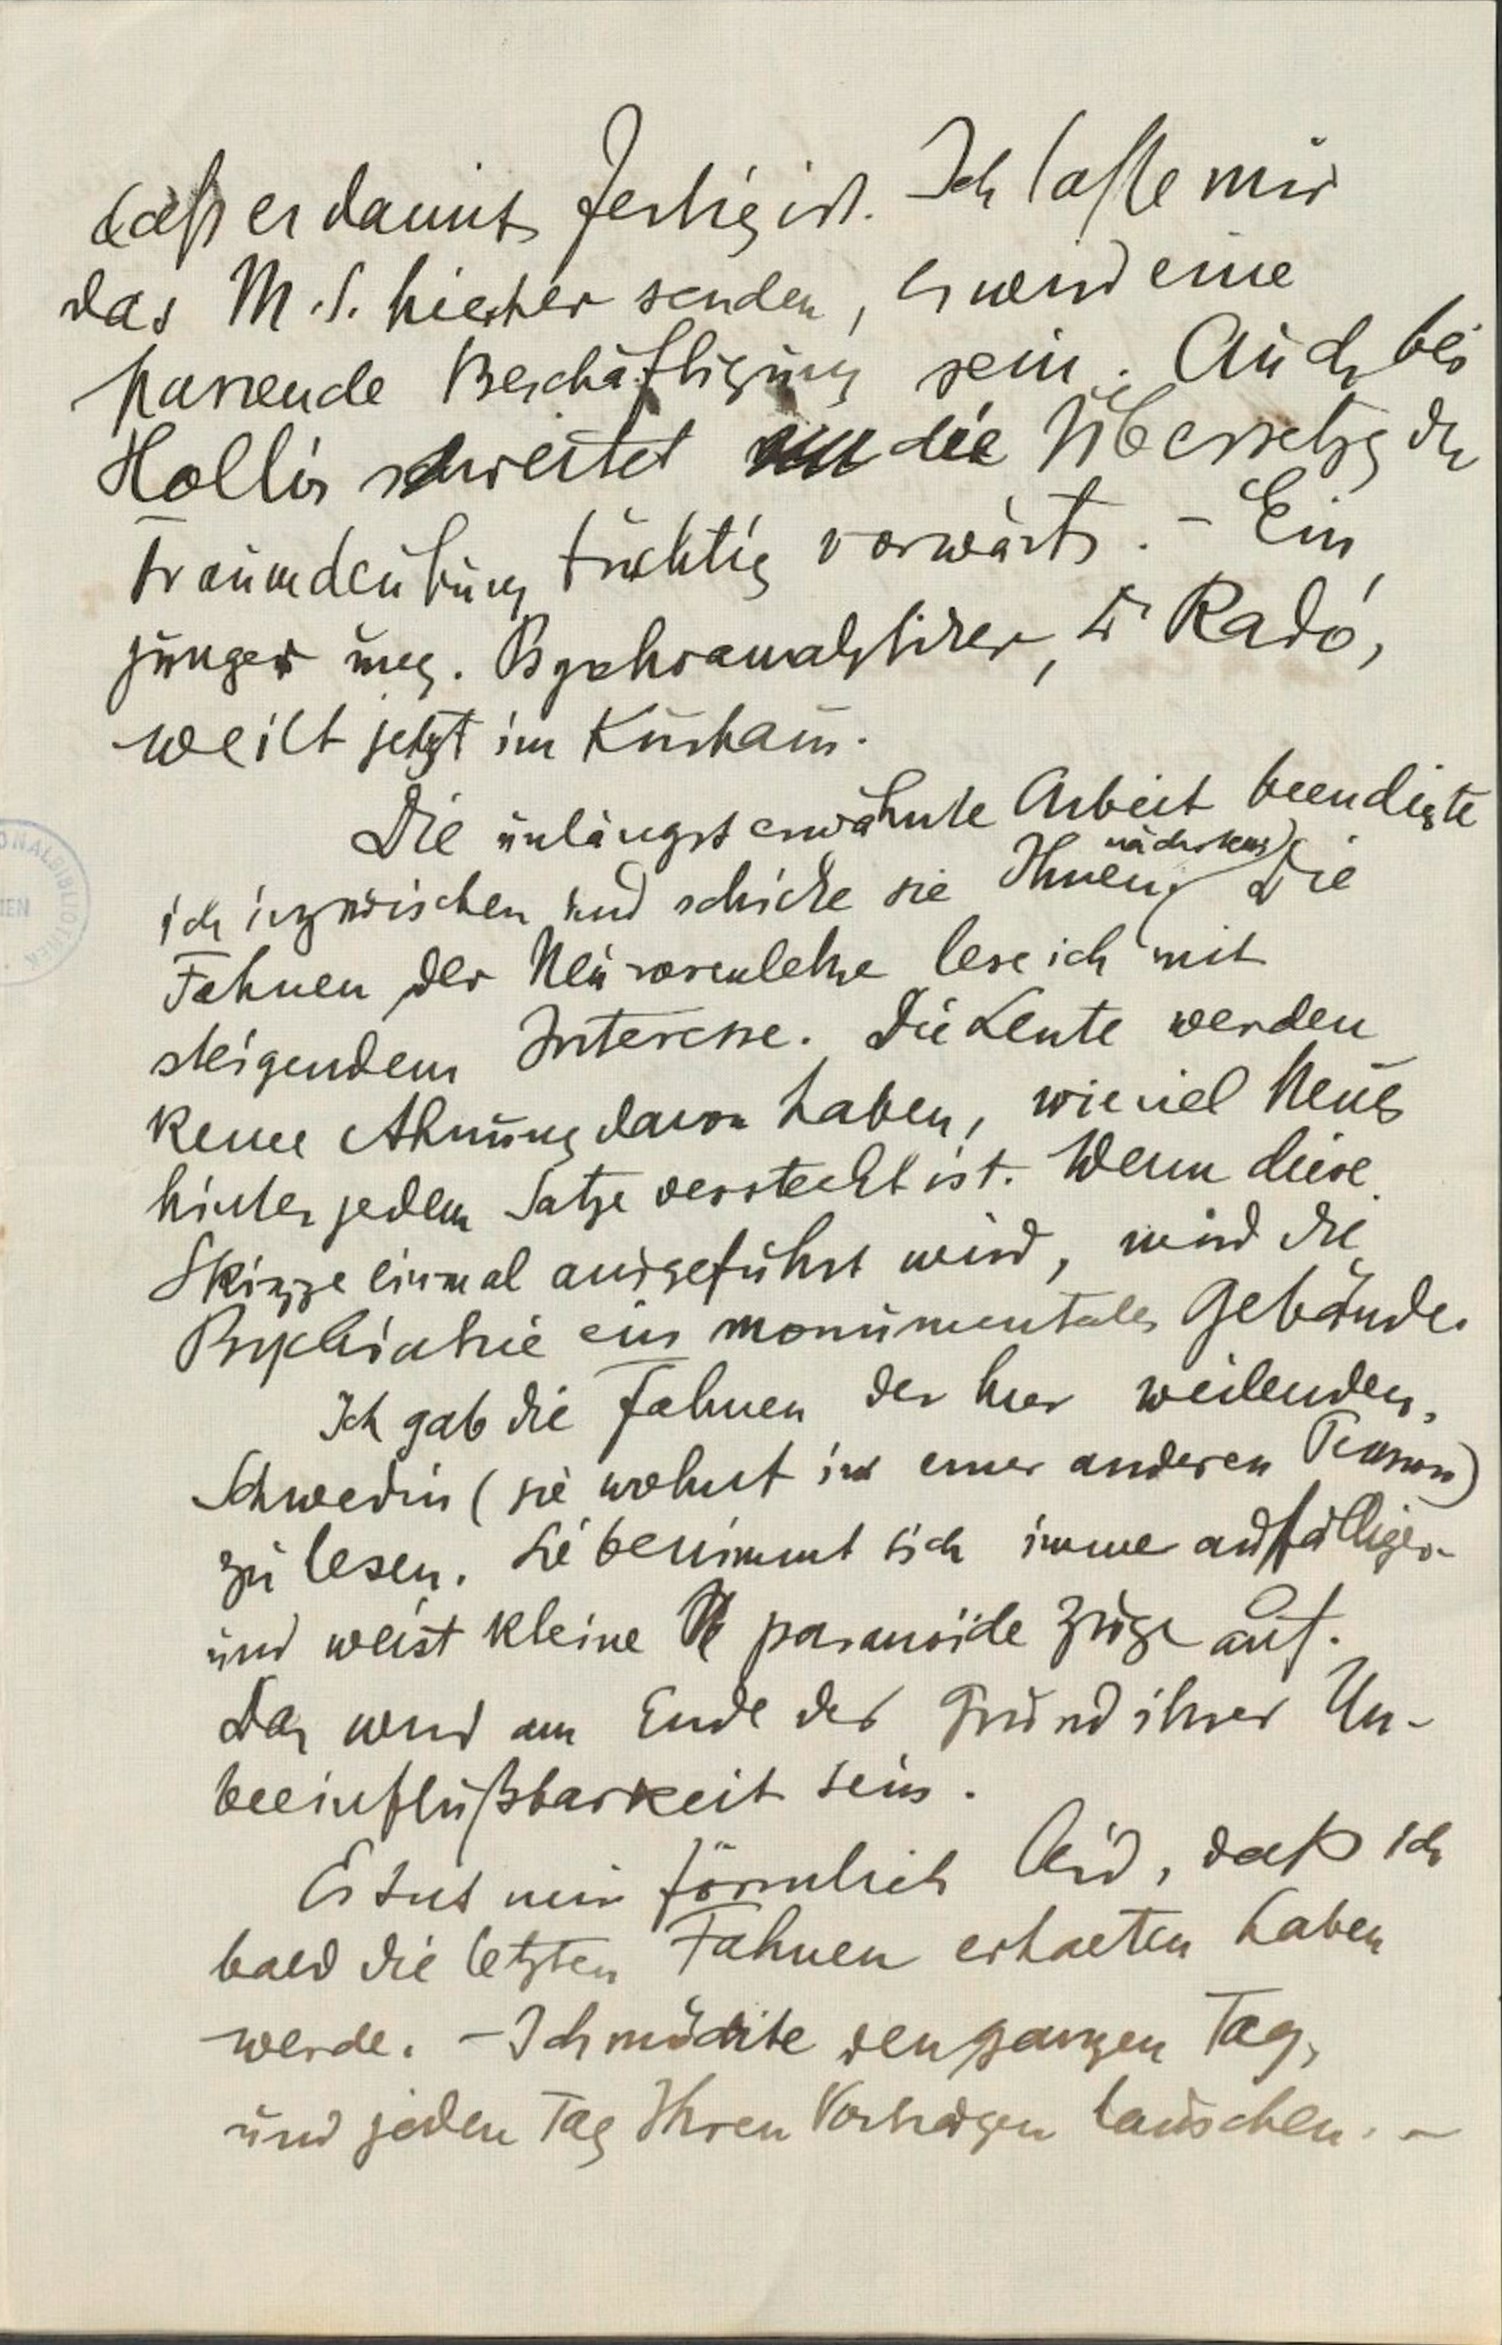 daß er damit fertig ist. Ich lasse mir
das M.S. hierher senden, es wird eine
passende Beschäftigung sein. Auch bei
Hollós schreitet die Übersetzg der
Traumdeutung tüchtig vorwärts. – Ein
junger ung. Psychoanalytiker, Dr Radó,
weilt jetzt im Kurhaus.
Die unlängst erwähnte Arbeit beendigte
nächstens
ich inzwischen und schicke sie Ihnen. Die
Fahnen der Neurosenlehre lese ich mit
steigendem Interesse. Die Leute werden
keine Ahnung davon haben, wieviel Neues
hinter jedem Satze versteckt ist. Wenn diese
Skizze einmal ausgeführt wird, wird die
Psychiatrie ein monumentales Gebäude.
Ich gab die Fahnen der hier weilenden
Schwedin (sie wohnt in einer anderen Pension)
zu lesen. Sie benimmt sich immer auffälliger
und weist kleine paranoide Züge auf.
Das wird am Ende der Grund ihrer Un-
beeinflußbarkeit sein.
Es tut mir förmlich leid, daß ich
bald die letzten Fahnen erhalten haben
werde. – Ich möchte den ganzen Tag,
und jeden Tag Ihren Vorträgen lauschen. –